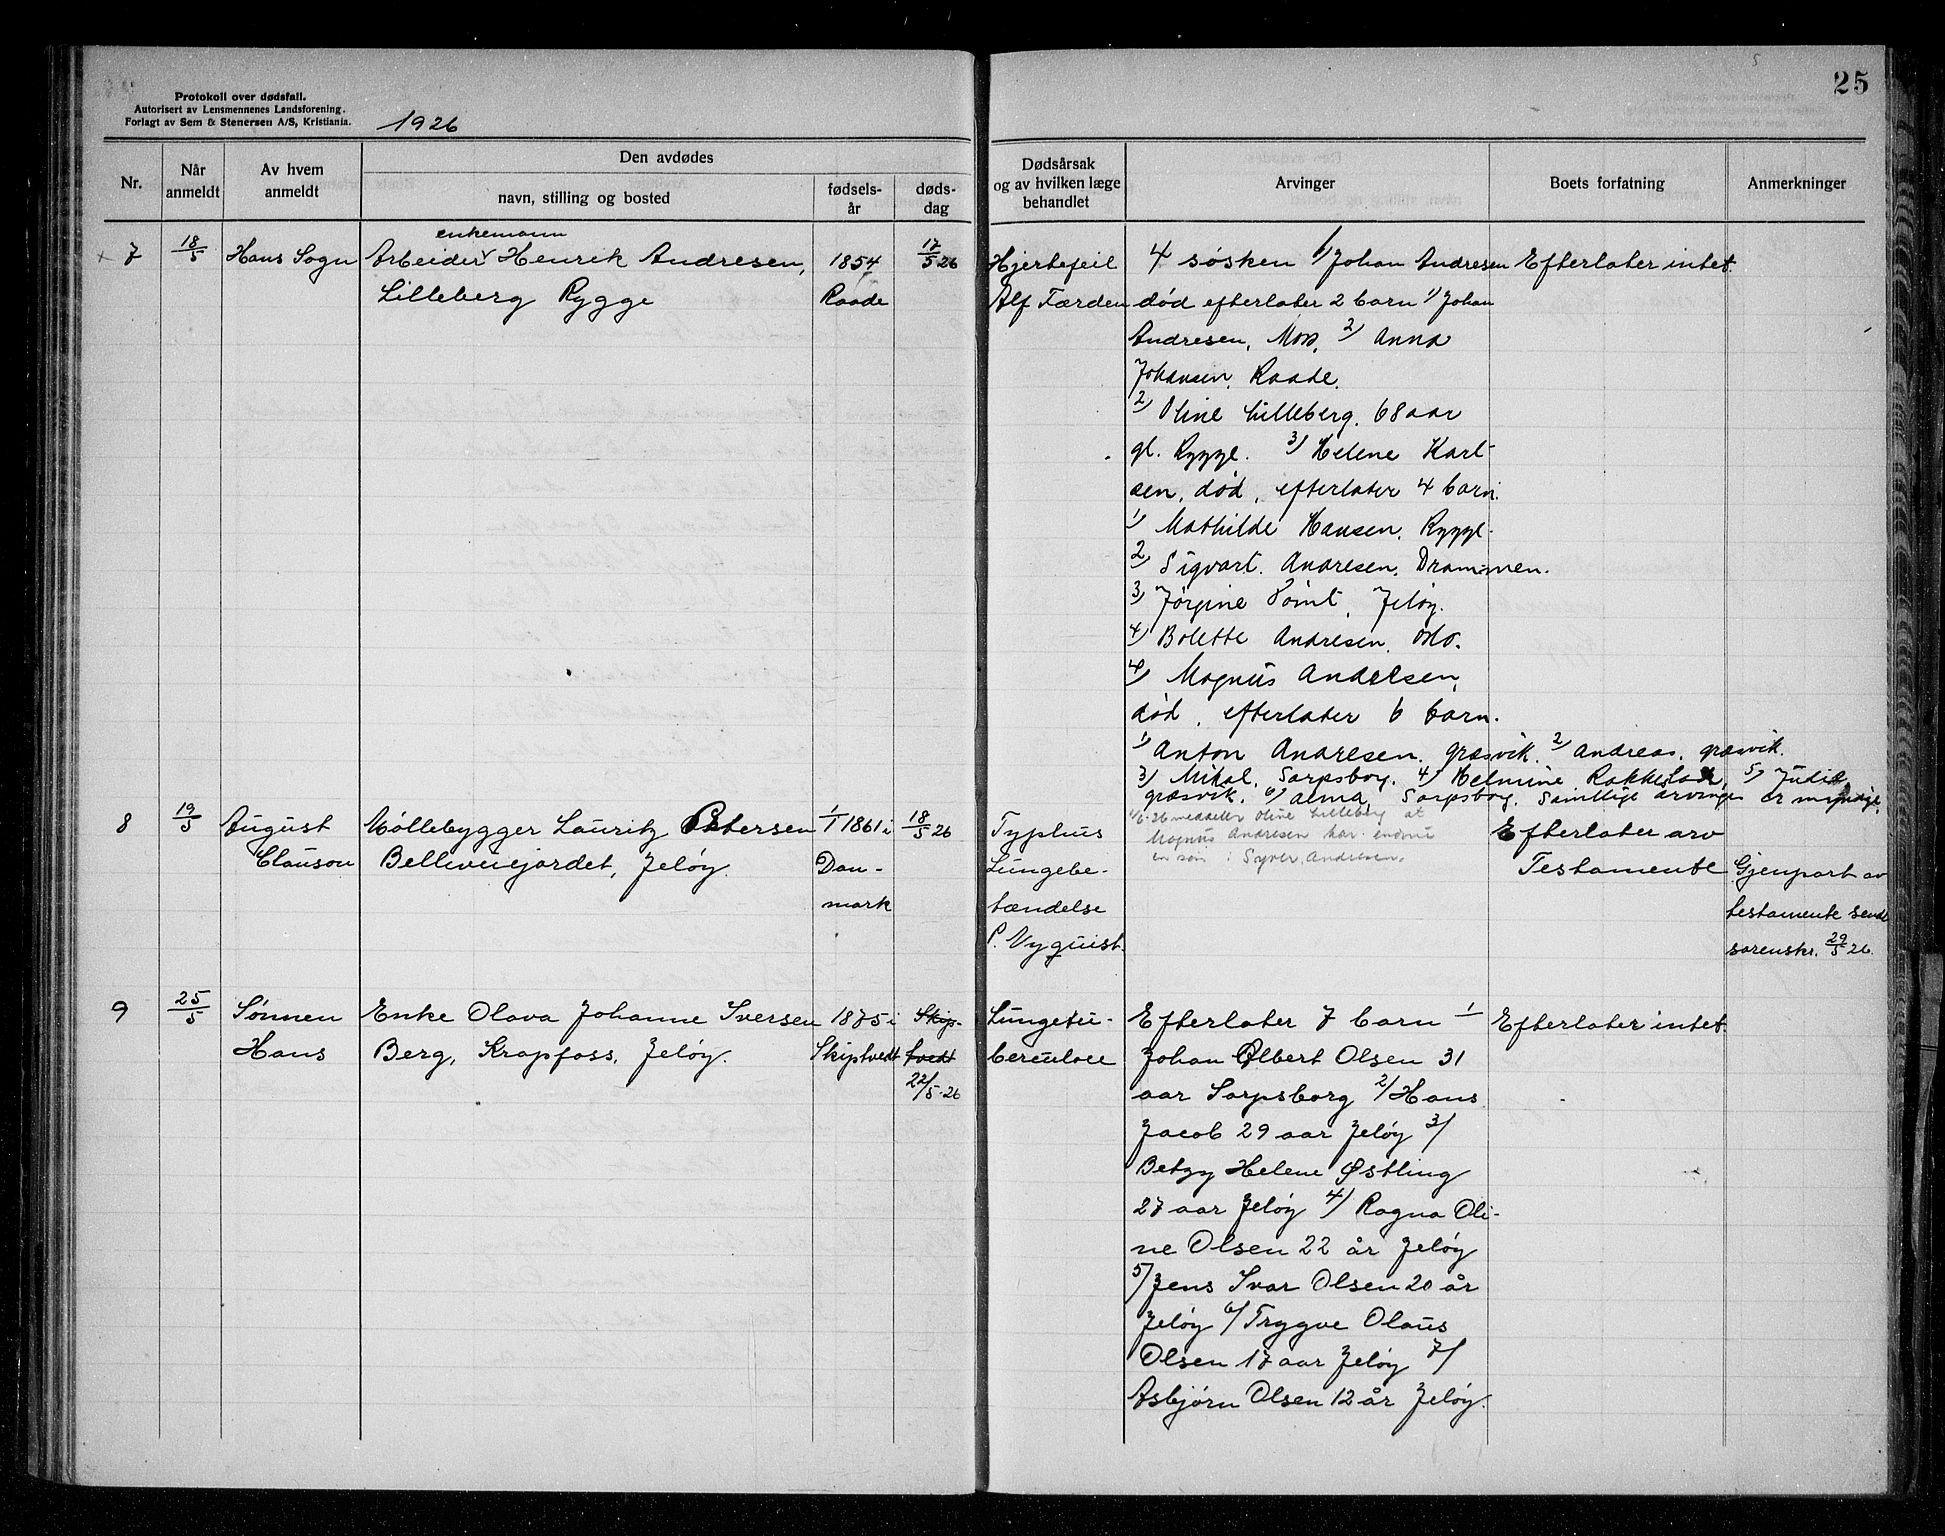 25
Protokoll over dødsfall.
Autorisert av Lensmennenes Landsforening.
Forlagt av Sem & Stenersen A/S, Kristiania.
1926
Nr.
Når anmeldt
Av hvem anmeldt
Den avdødes
navn, stilling og bosted
fødsels-år
døds-dag
Dødsårsak og av hvilken læge behandlet
Arvinger
Boets forfatning
Anmerkninger
7
18/5
Hans Sogn
enkemann
Arbeider Henrik Andresen,
Lilleberg Rygge
1854
Raade
17/5 26
Hjertefeil
Alf Færden
4 søsken 1/ Johan Andresen
død efterlater 2 barn 1/ Johan
Andresen, Moss, 2/ Anna
Johansen, Raade.
2/ Oline Lilleberg. 68 aar
gl. Rygge. 3/ Helene Karl-
sen, død, efterlater 4 barn.
1/ Mathilde Hansen, Rygge.
2/ Sigvart Andresen, Drammen.
3/ Jørgine Tømt, Jeløy.
4/ Bolette Andresen, Oslo.
4/ Magnus Andresen,
død, efterlater 6 barn.
1/ Anton Andresen. Græsvik. 2/ Andreas, Græsvik.
3/ Mikal, Sarpsborg. 4/ Helmine Rakkestad, 5/ Judit
Græsvik. 6/ Alma, Sarpsborg. Samtlige arvinger er myndige.
1/6-26 meddeler Oline Lilleberg at
Magnus Andresen har endnu
en søn: Syver Andresen.
Efterlater intet
8
19/5
August
Clauson
Møllebygger Lauritz Petersen
Bellevuejordet, Jeløy.
1/1 1861 i
Dan-
mark
18/5 26
Typhus
Lungebe-
tændelse
P. Nyquist.
Efterlater arv
Testamente
Gjenpart av
testamente sendt
sorenskr. 29/5 26
9
25/5
Sønnen
Hans
Enke Olava Johanne Iversen
Berg, Krapfoss, Jeløy.
1875 i
Skiptvedt
Skip-
tvedt
22/5-26
Lungetu-
berculose
Efterlater 7 barn 1/
Johan Albert Olsen 31
aar Sarpsborg 2/ Hans
Jacob 29 aar Jeløy 3/
Betzy Helene Østling
27 aar Jeløy 4/ Ragna Oli-
ne Olsen 22 år Jeløy
5/ Jens Ivar Olsen 20 år
Jeløy 6/ Trygve Olaus
Olsen 17 aar Jeløy 7/
Asbjørn Olsen 12 år Jeløy.
Efterlater intet